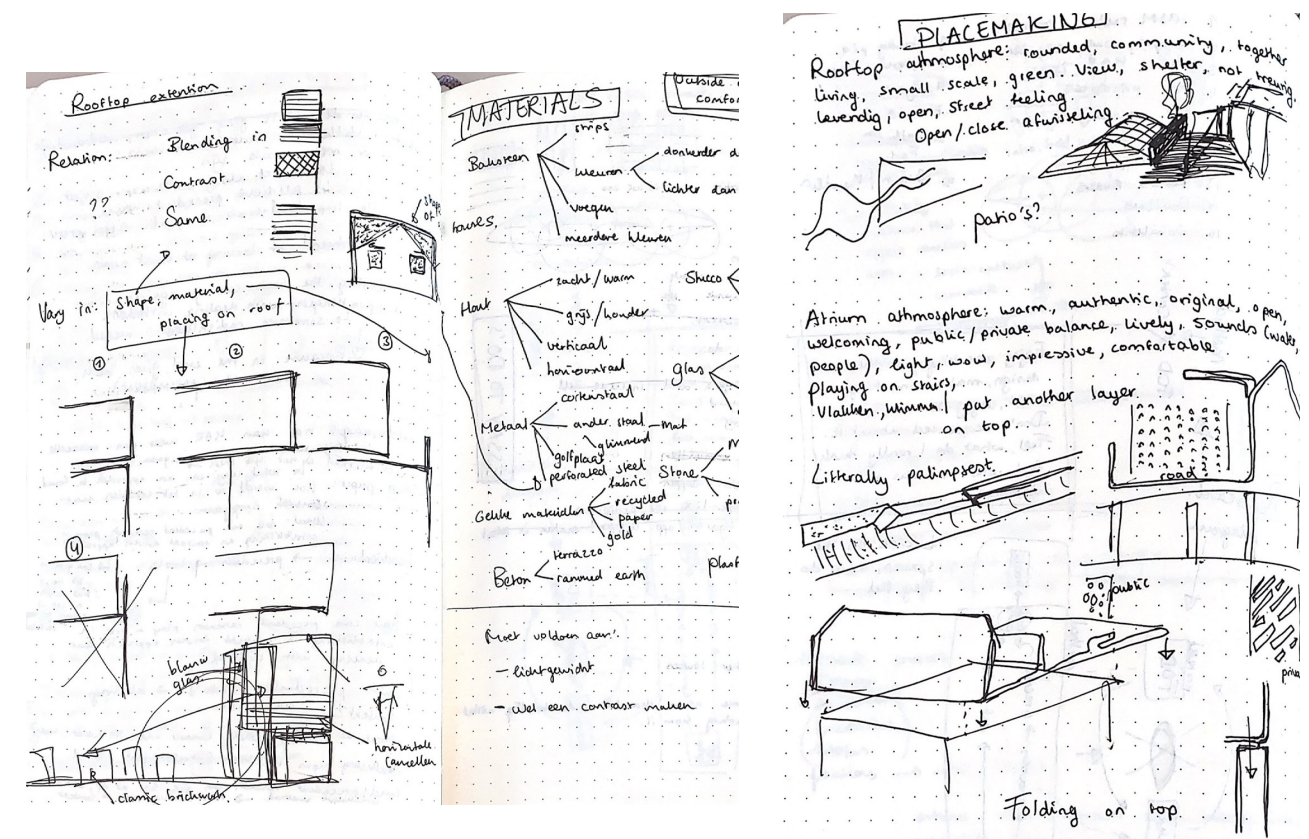 Rooftop extention
Relation:
Blending in
Contrast
??
Same
shape
of
Vary in:
Shape, material,
placing on roof
1
2
3
4
blauw
glas
6
horizontale
classic brickwork
MATERIALS
Outside
comfor
Baksteen
strips
kleuren
donkerder d
lichter dan
voegen
meerdere kleuren
houses,
Hout
zacht/warm
grijs/houder
verticaal
horizontaal
Stucco
glas
Metaal
cortenstaal
ander staal
mat
glimmend
golfplaat
perforated steel
Stone
Gekke materialen
fabric
recycled
paper
gold
Beton
terrazzo
rammed earth
plast
Moet voldoen aan:
- lichtgewicht
- wel een contrast maken
PLACEMAKING
Rooftop athmosphere: rounded, community, together
living, small scale, green. View, shelter, not treurig.
levendig, open, street feeling
Open/close afwisseling.
patio's?
Atrium athmosphere: warm, authentic, original, open,
welcoming, public/private balance, lively, sounds (water,
people), light, wow, impressive, comfartable
Playing on stairs,
put another layer
on top.
Litterally palimpsest.
road
public
priva
Folding on top